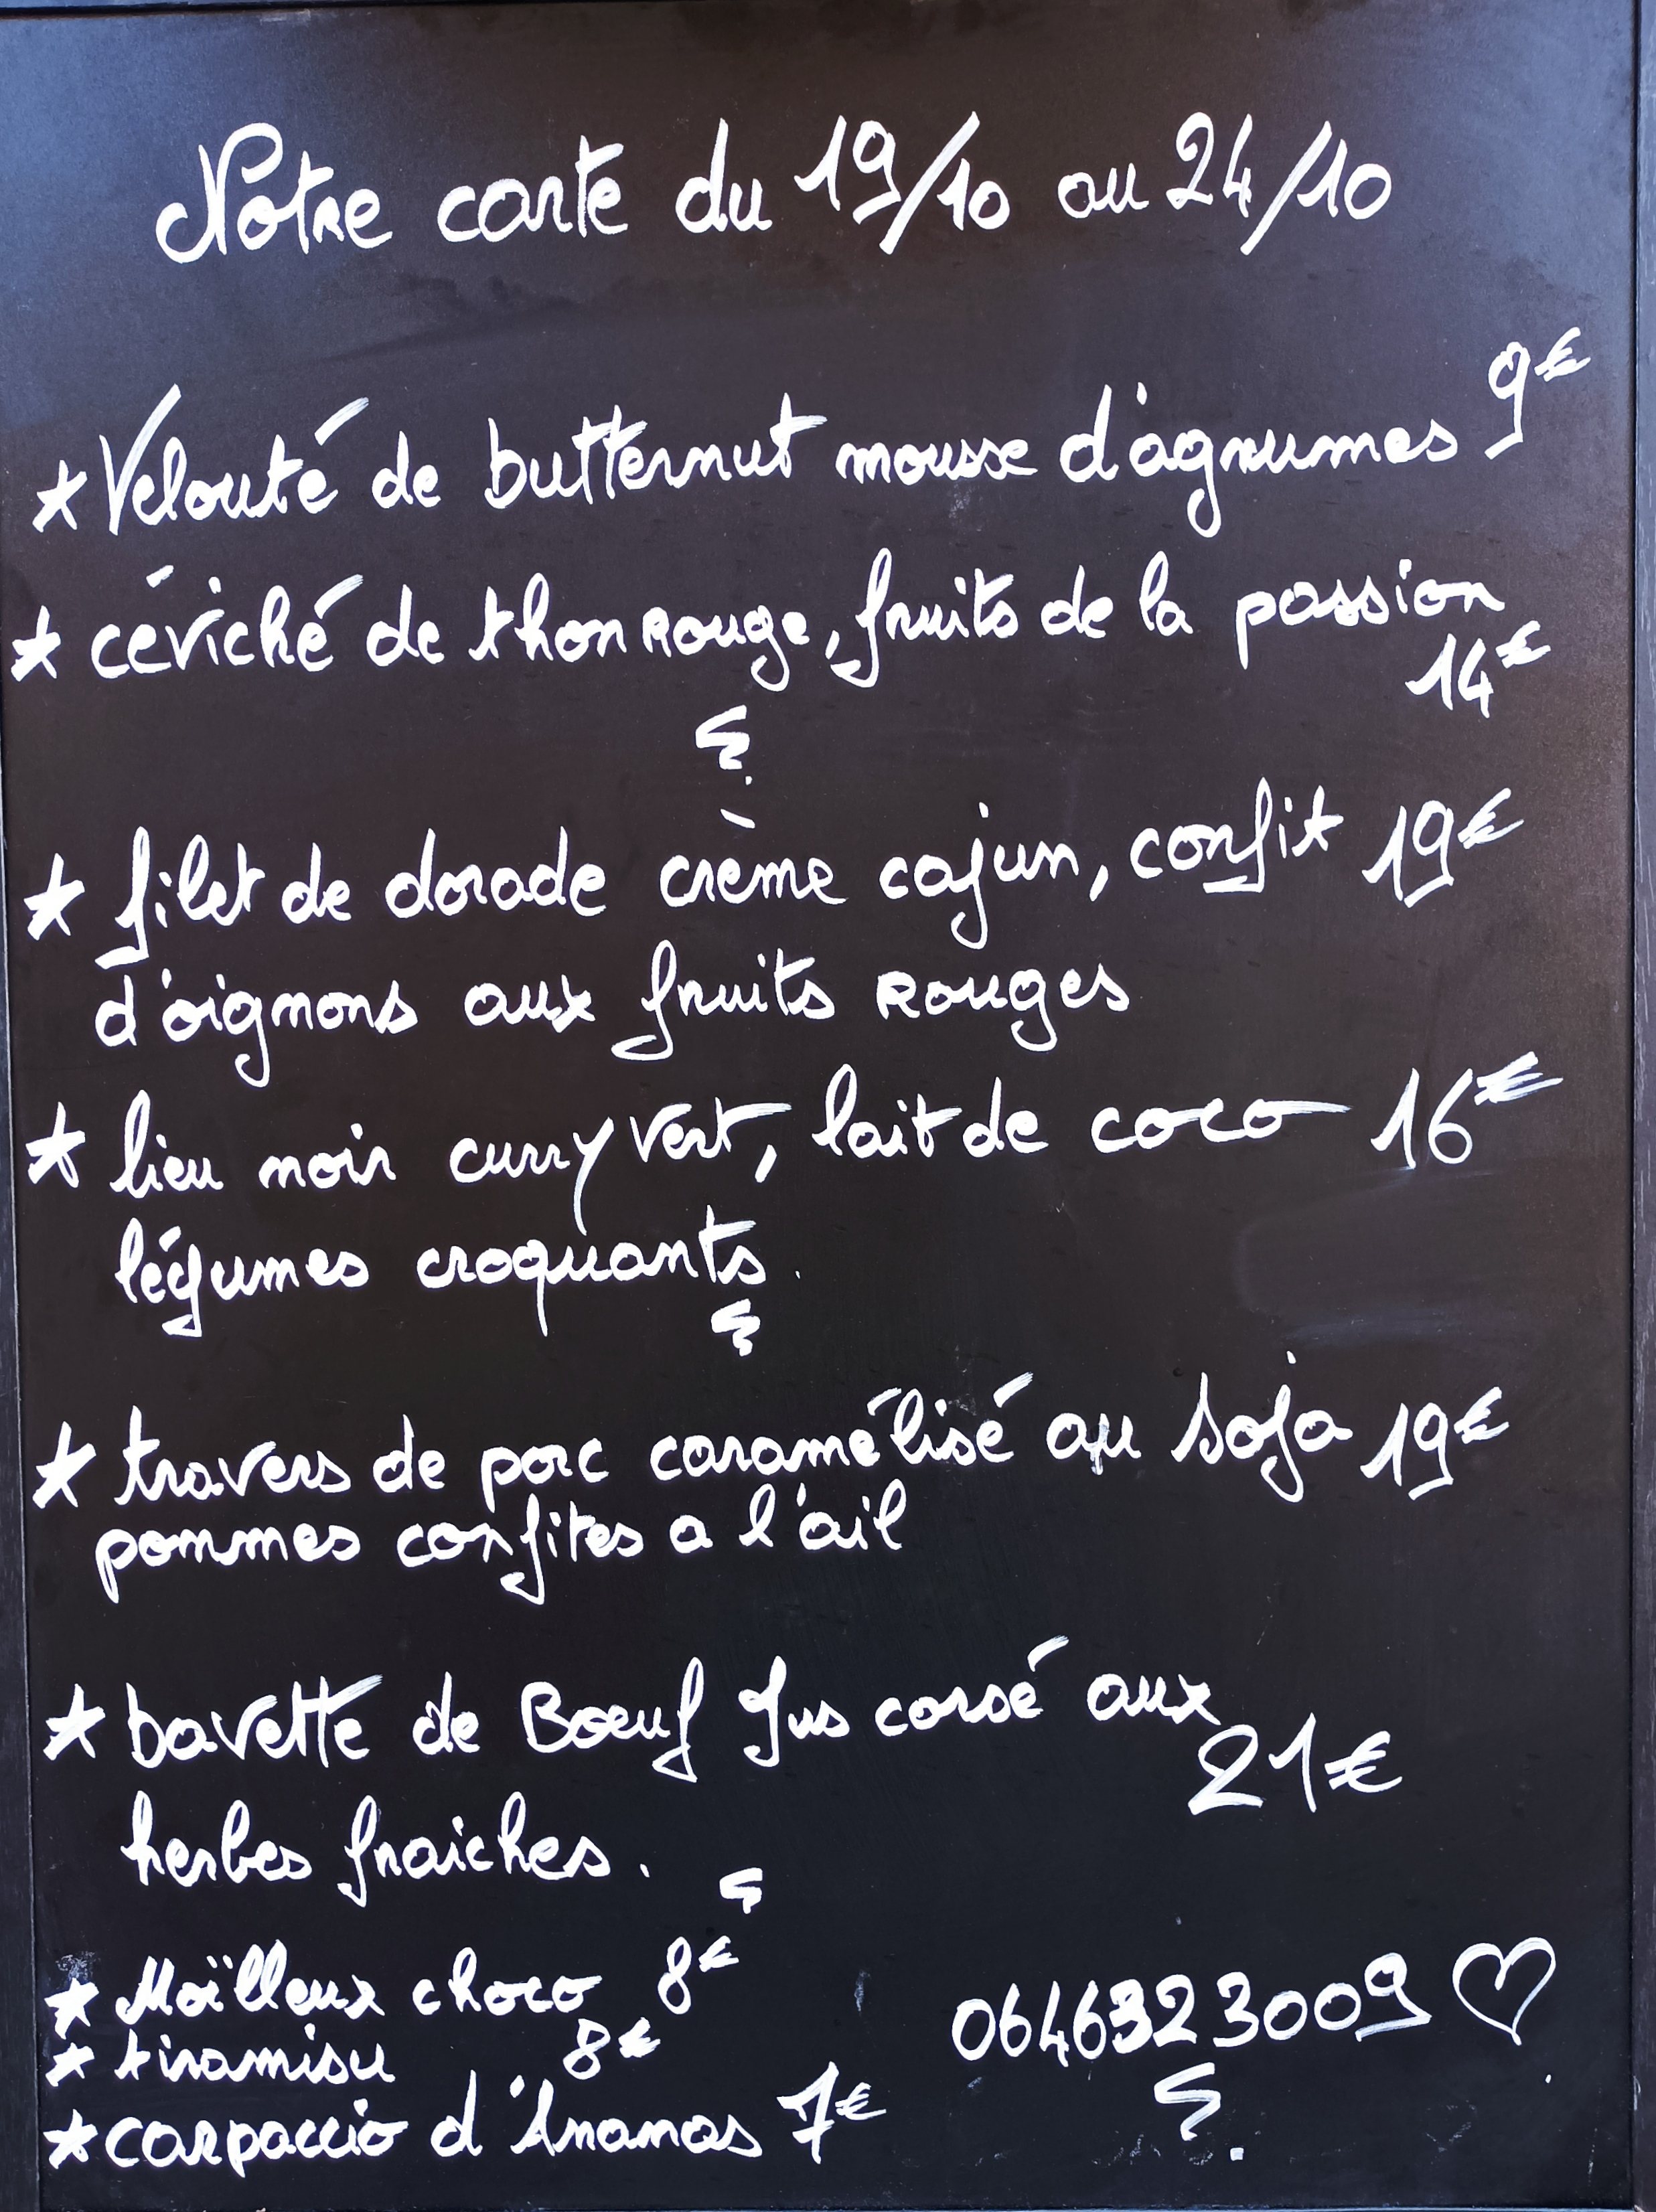 Notre carte du 19/10 au 24/10
* Velouté de butternut mousse d'agrumes 9€
* céviché de thon Rouge, fruits de la passion
14€
* filet de dorade crème cajun, confit 19€
d'oignons aux fruits Rouges
* lieu noir curry vert, lait de coco 16€
légumes croquants.
* travers de porc caramélisé au soja 19€
pommes confites a l'ail
* bavette de Boeuf Jus corsé aux
21€
herbes fraiches.
* Moïlleux choco 8€
* tiramisu 8€
0646323009 ♡
* carpaccio d'Ananas 7€